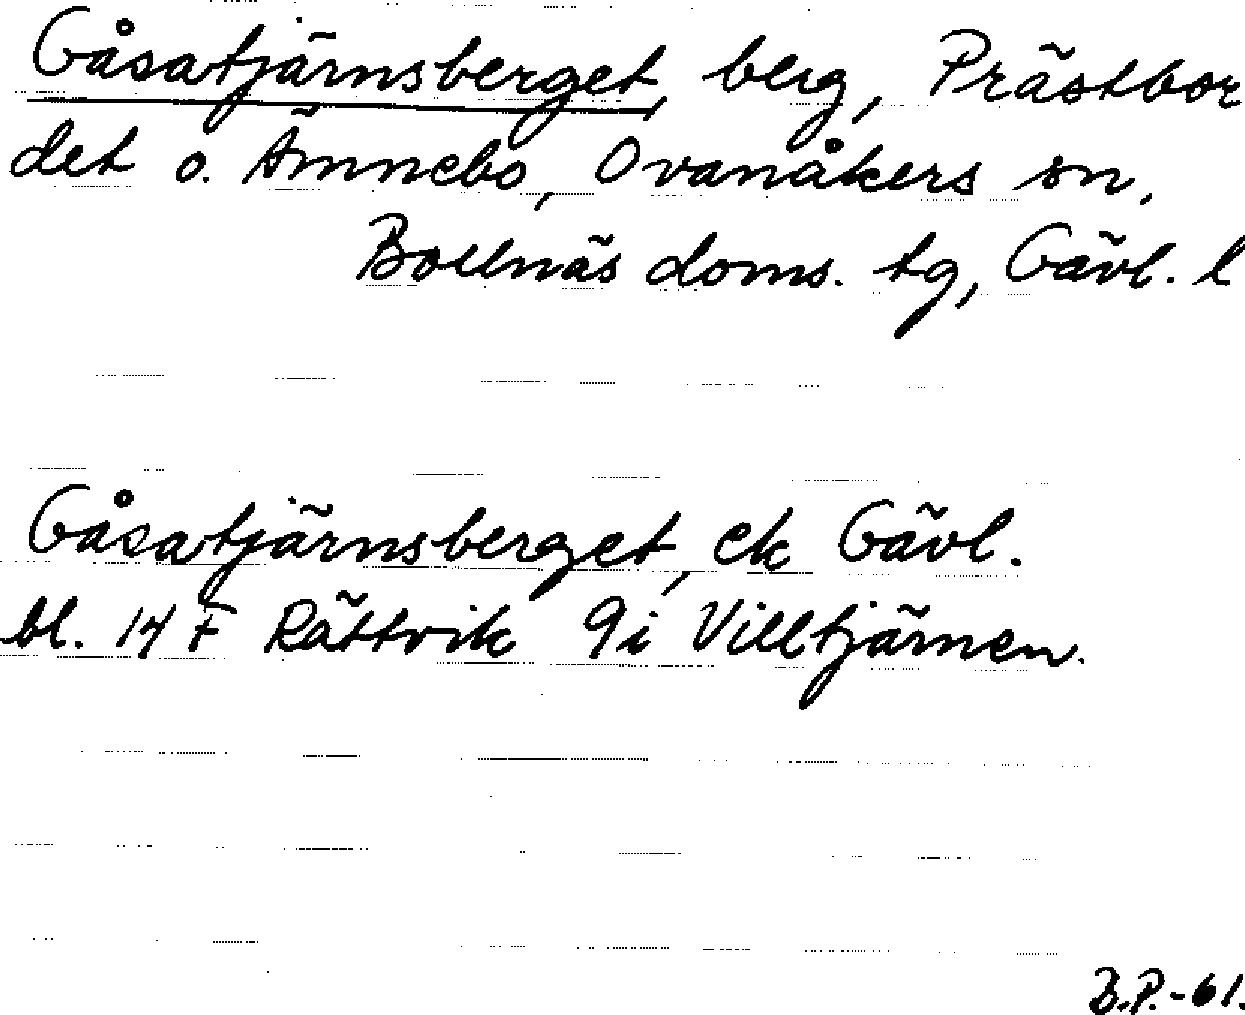 Gåsatjärnsberget, berg, Prästbor
det o. Ämnebo, Ovanåkers sn,
Bollnäs doms. tg, Gävl. l
Gåsatjärnsberget, ek Gävl.
bl. 14 F Rättvik 9i Villtjärnen.
B.P.-61.